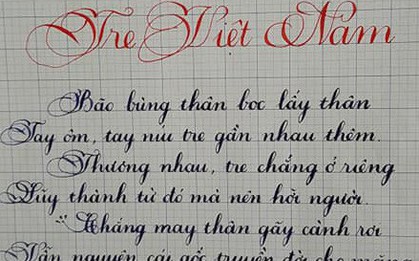 Tre Việt Nam
Bão bùng thân bọc lấy thân
Tay ôm, tay níu tre gần nhau thêm.
Thương nhau, tre chẳng ở riêng
Lũy thành từ đó mà nên hỡi người.
"Chẳng may thân gãy cành rơi
Vẫn nguyên cái gốc truyền đời cho măng